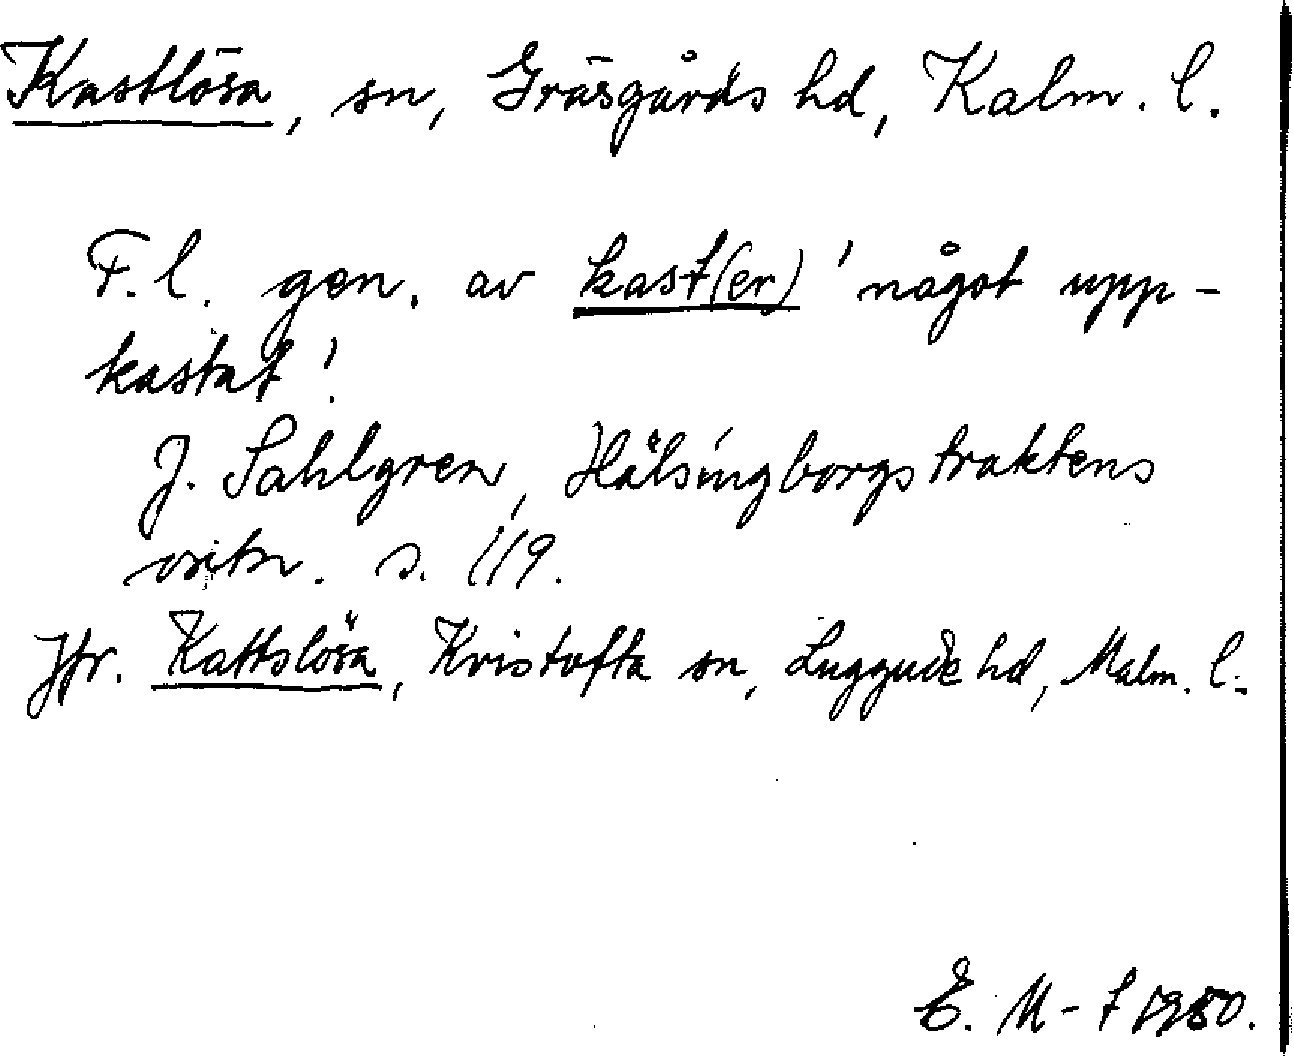 Kastlösa, sn, Gräsgårds hd, Kalm. l.
F. l. gen. av kast(er) 'något upp-
kastat'.
J. Sahlgren, Hälsingborgstraktens
ortn. s. 119.
Jfr. Kattslösa, Kristofta sn, Luggude hd, Malm. l.
E. M-f 1950.